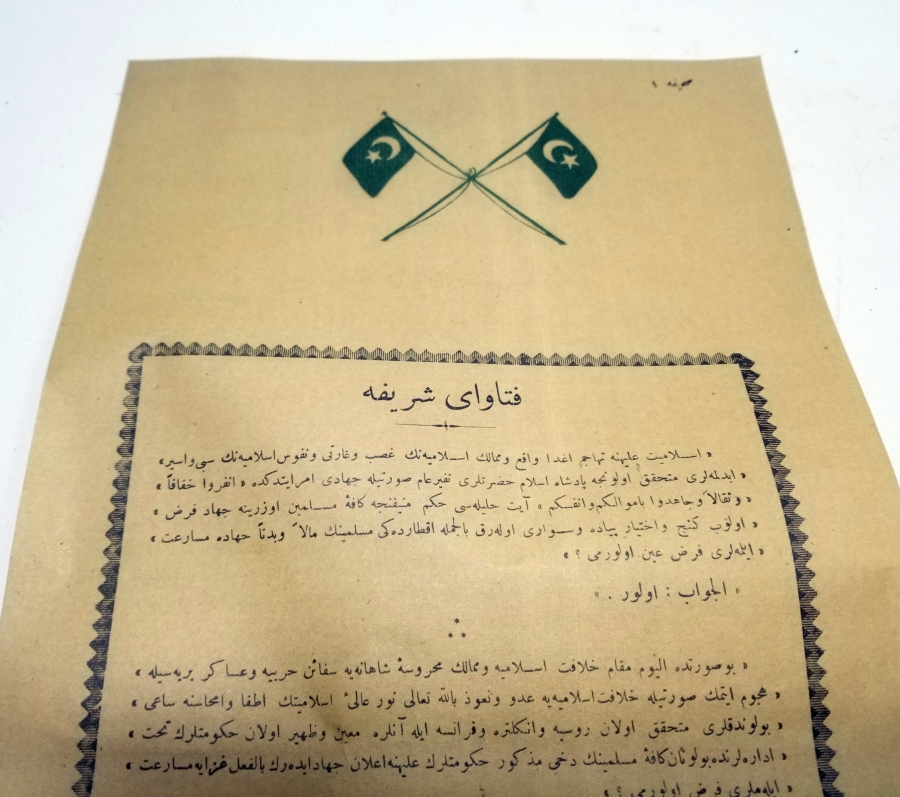 صحیفه ١
فتاوای شریفه
« اسلامیت علیهنه تهاجم اعدا واقع وممالك اسلامیه‌نك غصب وغارتی ونفوس اسلامیه‌نك سبی واسیر »
« ایدلمه‌لری متحقق اولونجه پادشاه اسلام حضرتلری نفیر عام صورتیله جهادی امر ایتدكده « انفروا خفافاً »
« وثقالاً وجاهدوا باموالكم وانفسكم » آیت جلیله‌سی حكم منیفنجه كافهٔ مسلمین اوزرینه جهاد فرض »
« اولوب كنج واختیار پیاده وسواری اوله‌رق بالجمله اقطارده‌كی مسلمینك مالاً وبدناً جهاده مسارعت »
« ایله‌لری فرض عین اولورمی ؟ »
« الجواب : اولور . »
« بو صورتده الیوم مقام خلافت اسلامیه وممالك محروسهٔ شاهانه‌یه سفائن حربیه وعساكر بریه‌سیله »
« هجوم ایتمك صورتیله خلافت اسلامیه‌یه عدو ونعوذ بالله تعالی نور عالیٔ اسلامیتك اطفا وامحاسنه ساعی »
« بولوندقلری متحقق اولان روسیه وانكلتره وفرانسه ایله آنلره معین وظهیر اولان حكومتلرك تحت »
« اداره‌لرنده بولونان كافهٔ مسلمینك دخی مذكور حكومتلرك علیهنه اعلان جهاد ایده‌رك بالفعل غزایه مسارعت »
« ایله‌ملری فرض اولورمی ؟ »